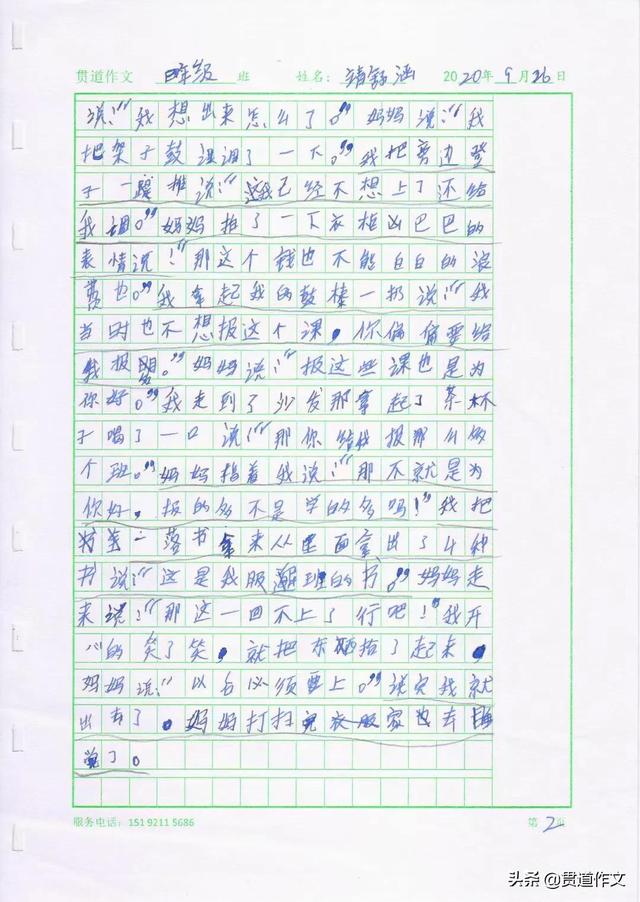 贯道作文 四年级 班 姓名: 靖舒涵 2020年9月26日
说:“我想出来怎么了。”妈妈说:“我
把架子鼓湿润了一下。”我把旁边凳
子一踢 说:“这我已经不想上了还给
我调。”妈妈拍了一下衣柜凶巴巴的
表情说:“那这个钱也不能白白的浪
费也。”我拿起我的鼓棒一扔说:“我
当时也不想报这个课,你偏偏要给
我报 。”妈妈说:“报这些课也是为
你好。”我走到了沙发那拿起了茶杯
子喝了一口说:“那你给我报那么多
个班。”妈妈指着我说:“那不就是为
你好,报的多不是学的多吗!”我把
一落书拿来从里面拿出了4种
书说:“这是我服 班的书。”妈妈走
来说:“那这一回不上了行吧!”我开
心的笑了笑,就把东西捨了起来,
妈妈说:“以后必须要上。”说完我就
出去了。妈妈打扫完衣服家也去睡
觉了。
服务电话:151 9211 5686 第2页
头条@贯道作文